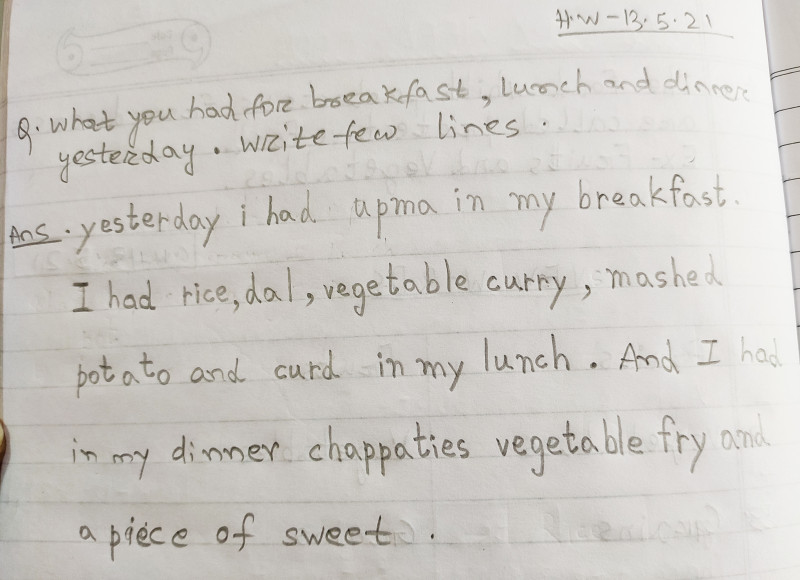 H.W - 13.5.21
Q. What you had for breakfast, lunch and dinner
yesterday. Write few lines.
Ans. yesterday i had upma in my breakfast.
I had rice, dal, vegetable curry, mashed
potato and curd in my lunch. And I had
in my dinner chappaties vegetable fry and
a piece of sweet.